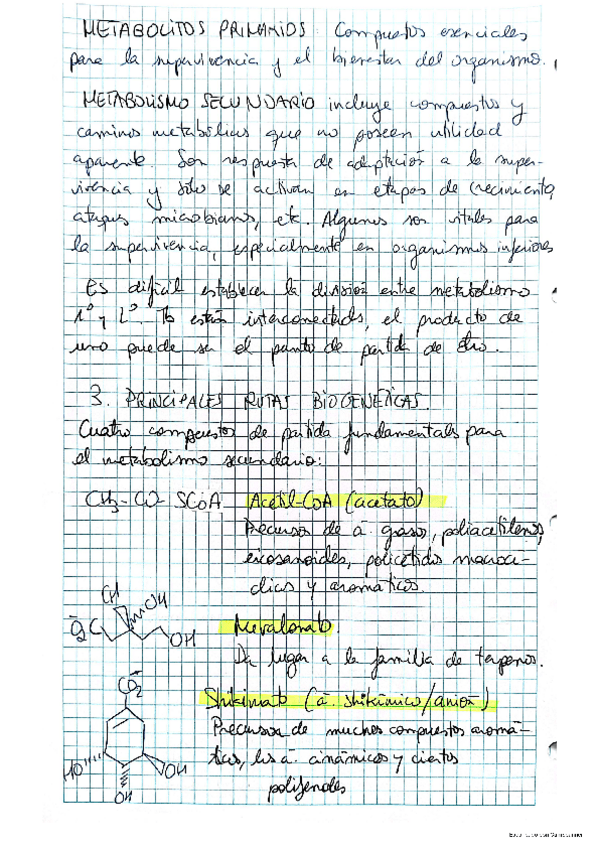 METABOLITOS PRIMARIOS: Compuestos esenciales
para la supervivencia y el bienestar del organismo.
METABOLISMO SECUNDARIO incluye compuestos y
caminos metabólicos que no poseen utilidad
aparente. Son respuesta de adaptación a la super-
vivencia y sólo se activan en etapas de crecimiento,
ataques microbianos, etc. Algunos son vitales para
la supervivencia, especialmente en organismos inferiores
Es difícil establecer la división entre metabolismo
1º y 2º. Tb están interconectados, el producto de
uno puede ser el punto de partida de otro.
3. PRINCIPALES RUTAS BIOGENÉTICAS.
Cuatro compuestos de partida fundamentals para
el metabolismo secundario:
CH3-CO-SCoA Acetil-CoA (acetato)
Precursor de á. graso, poliacetilenos,
eicosanoides, policétidos macrocí-
clicos y aromáticos.
OH
OH
Mevalonato.
Da lugar a la familia de terpenos.
CO2
Shikimato (á. shikímico/anión)
Precursor de muchos compuestos aromá-
ticos, los á. cinámicos y ciertos
polifenoles
HO
OH
OH